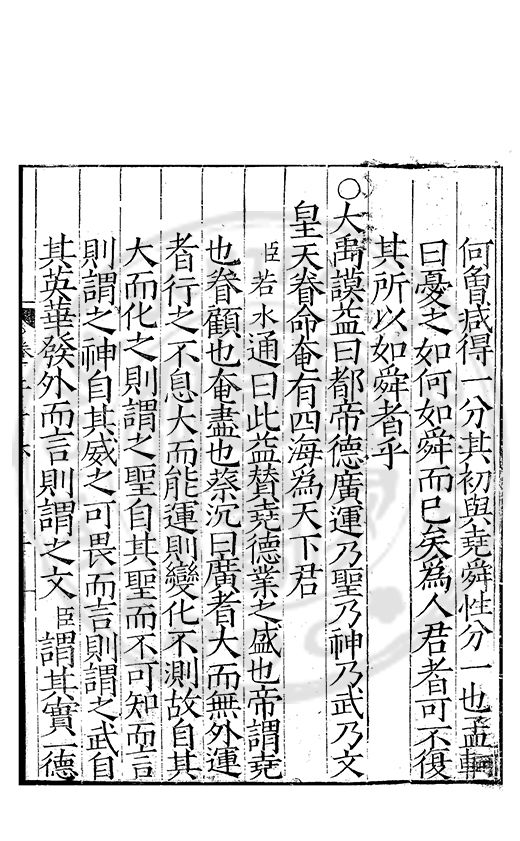 何魯減得一分其初與堯舜性分一也孟軻
曰憂之如何如舜而已矣為人君者可不復
其所以如舜者乎
○大禹謨益曰都帝德廣運乃聖乃神乃武乃文
皇天眷命奄有四海為天下君
臣若水通曰此益贊堯德業之盛也帝謂堯
也眷顧也奄盡也蔡沉曰廣者大而無外運
者行之不息大而能運則變化不測故自其
大而化之則謂之聖自其聖而不可知而言
則謂之神自其威之可畏而言則謂之武自
其英華發外而言則謂之文臣謂其實一德